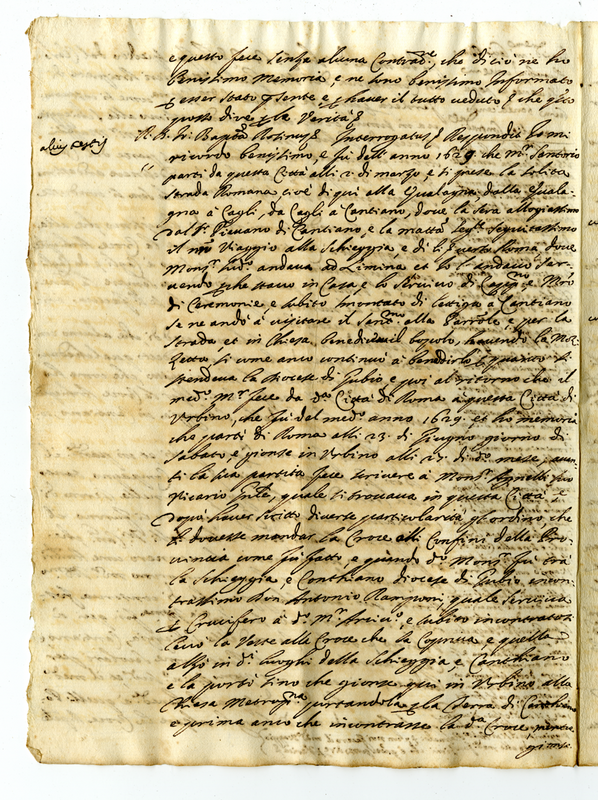 e questo fece senza alcuna Contrad.e, che di ciò ne ho
benissimo Memoria, e ne sono benissimo Informato
p esser stato p.sente e p haver il tutto veduto
le Verità
alius testis
Interrogatus Respondit Io mi
ricordo benissimo, e fu dell'anno 1629 che M.r Santorio
partì da questa Città alli 2 di marzo e si prese la solita
strada Romana cioè di qui alla Qualagna dalla Quala
gna a Cagli, da Cagli a Cantiano, dove la sera alloggiassimo
dal S.r Piovano di Cantiano, e la matt.a seg.te seguitassimo
il nr̃o Viaggio alla Schieggia, e di lì verso Roma, dove
Mons.r sud.o andava ad Limina, et io l'andavo ser
vendo che stavo in Casa, e lo servivo di e Mr̃o
di Ceremonie, e subito smontato di lettiga a Cantiano
se ne andò a visitare il Sant.mo alla Parrochia, e per la
strada et in Chiesa benediva il Popolo, havendo la Moz
zetta si come anco continuò a benedirlo p quanto si
stendeva la diocese di Gubio e poi al ritorno che il
med.o M.r fece da d.a Città di Roma a questa Città di
Urbino, che fu del med.o anno 1629 et ho memoria
che partì di Roma alli 23 di Giugno giorno di
Sabato e gionse in Urbino alli 27 di d.o mese, avan
ti la sua partita fece scrivere a Mons.r suo
Vicario Gn̄le, quale si trovava in questa Città e
dopò haver scritto diverse particolarità gl'ordinò che
si dovesse mandar la Croce alli Confini della Pro
vincia come fu fatto, e quando d.o Mons.r fu trà
la Schieggia, e Conthiano diocese di Gubio incon
trassimo Don Antonio Ramponi quale serviva
p Crucifero a d.o M.r Arciv.o, e subito incontratosi
levò la Veste alla Croce che la Copriva e quella
alzò in d.i luoghi della Schieggia e Canthiano
e la portò sino che gionse qui in Urbino alla
Chiesa Metrop.na portandola p la Terra di Canthiano
e prima anco che incontrasse la d.a Croce